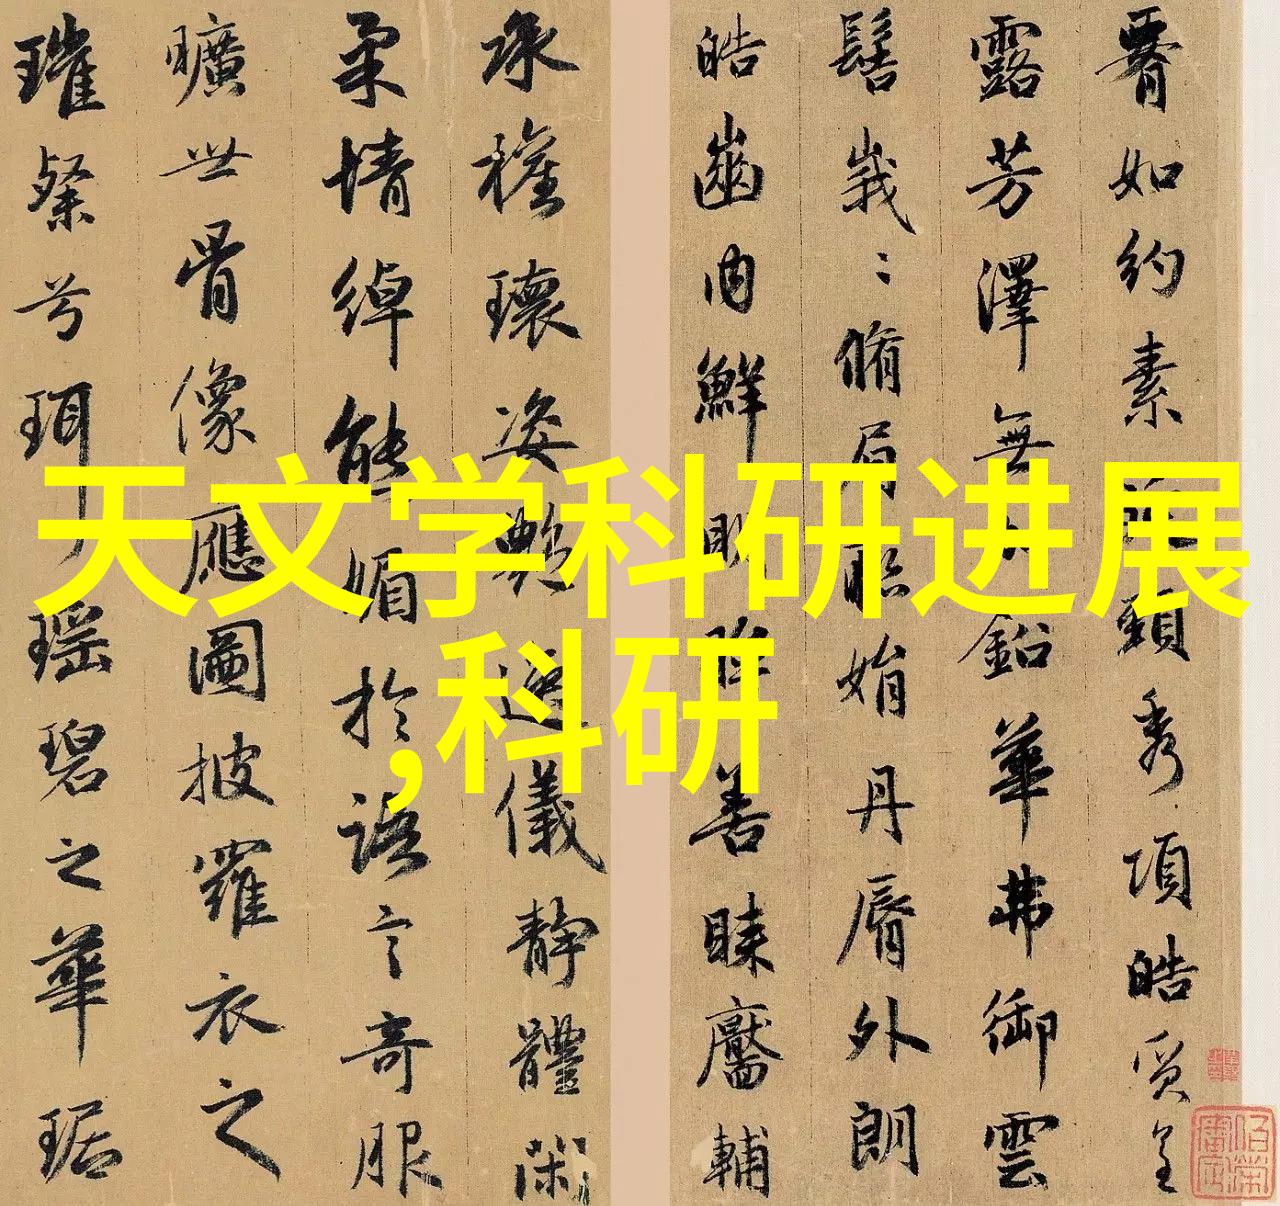 天文学科研进展
,科研
要如約素延頸秀項皓質呈
露芳澤無加鉛華弗御雲
髻峩：脩眉聯娟丹脣外朗
皓齒內鮮明眸善睞靨輔
承權瓌姿艷逸儀靜體閑
柔情綽態媚於語言奇服
曠世骨像應圖披羅衣之
璀粲兮珥瑤碧之華琚